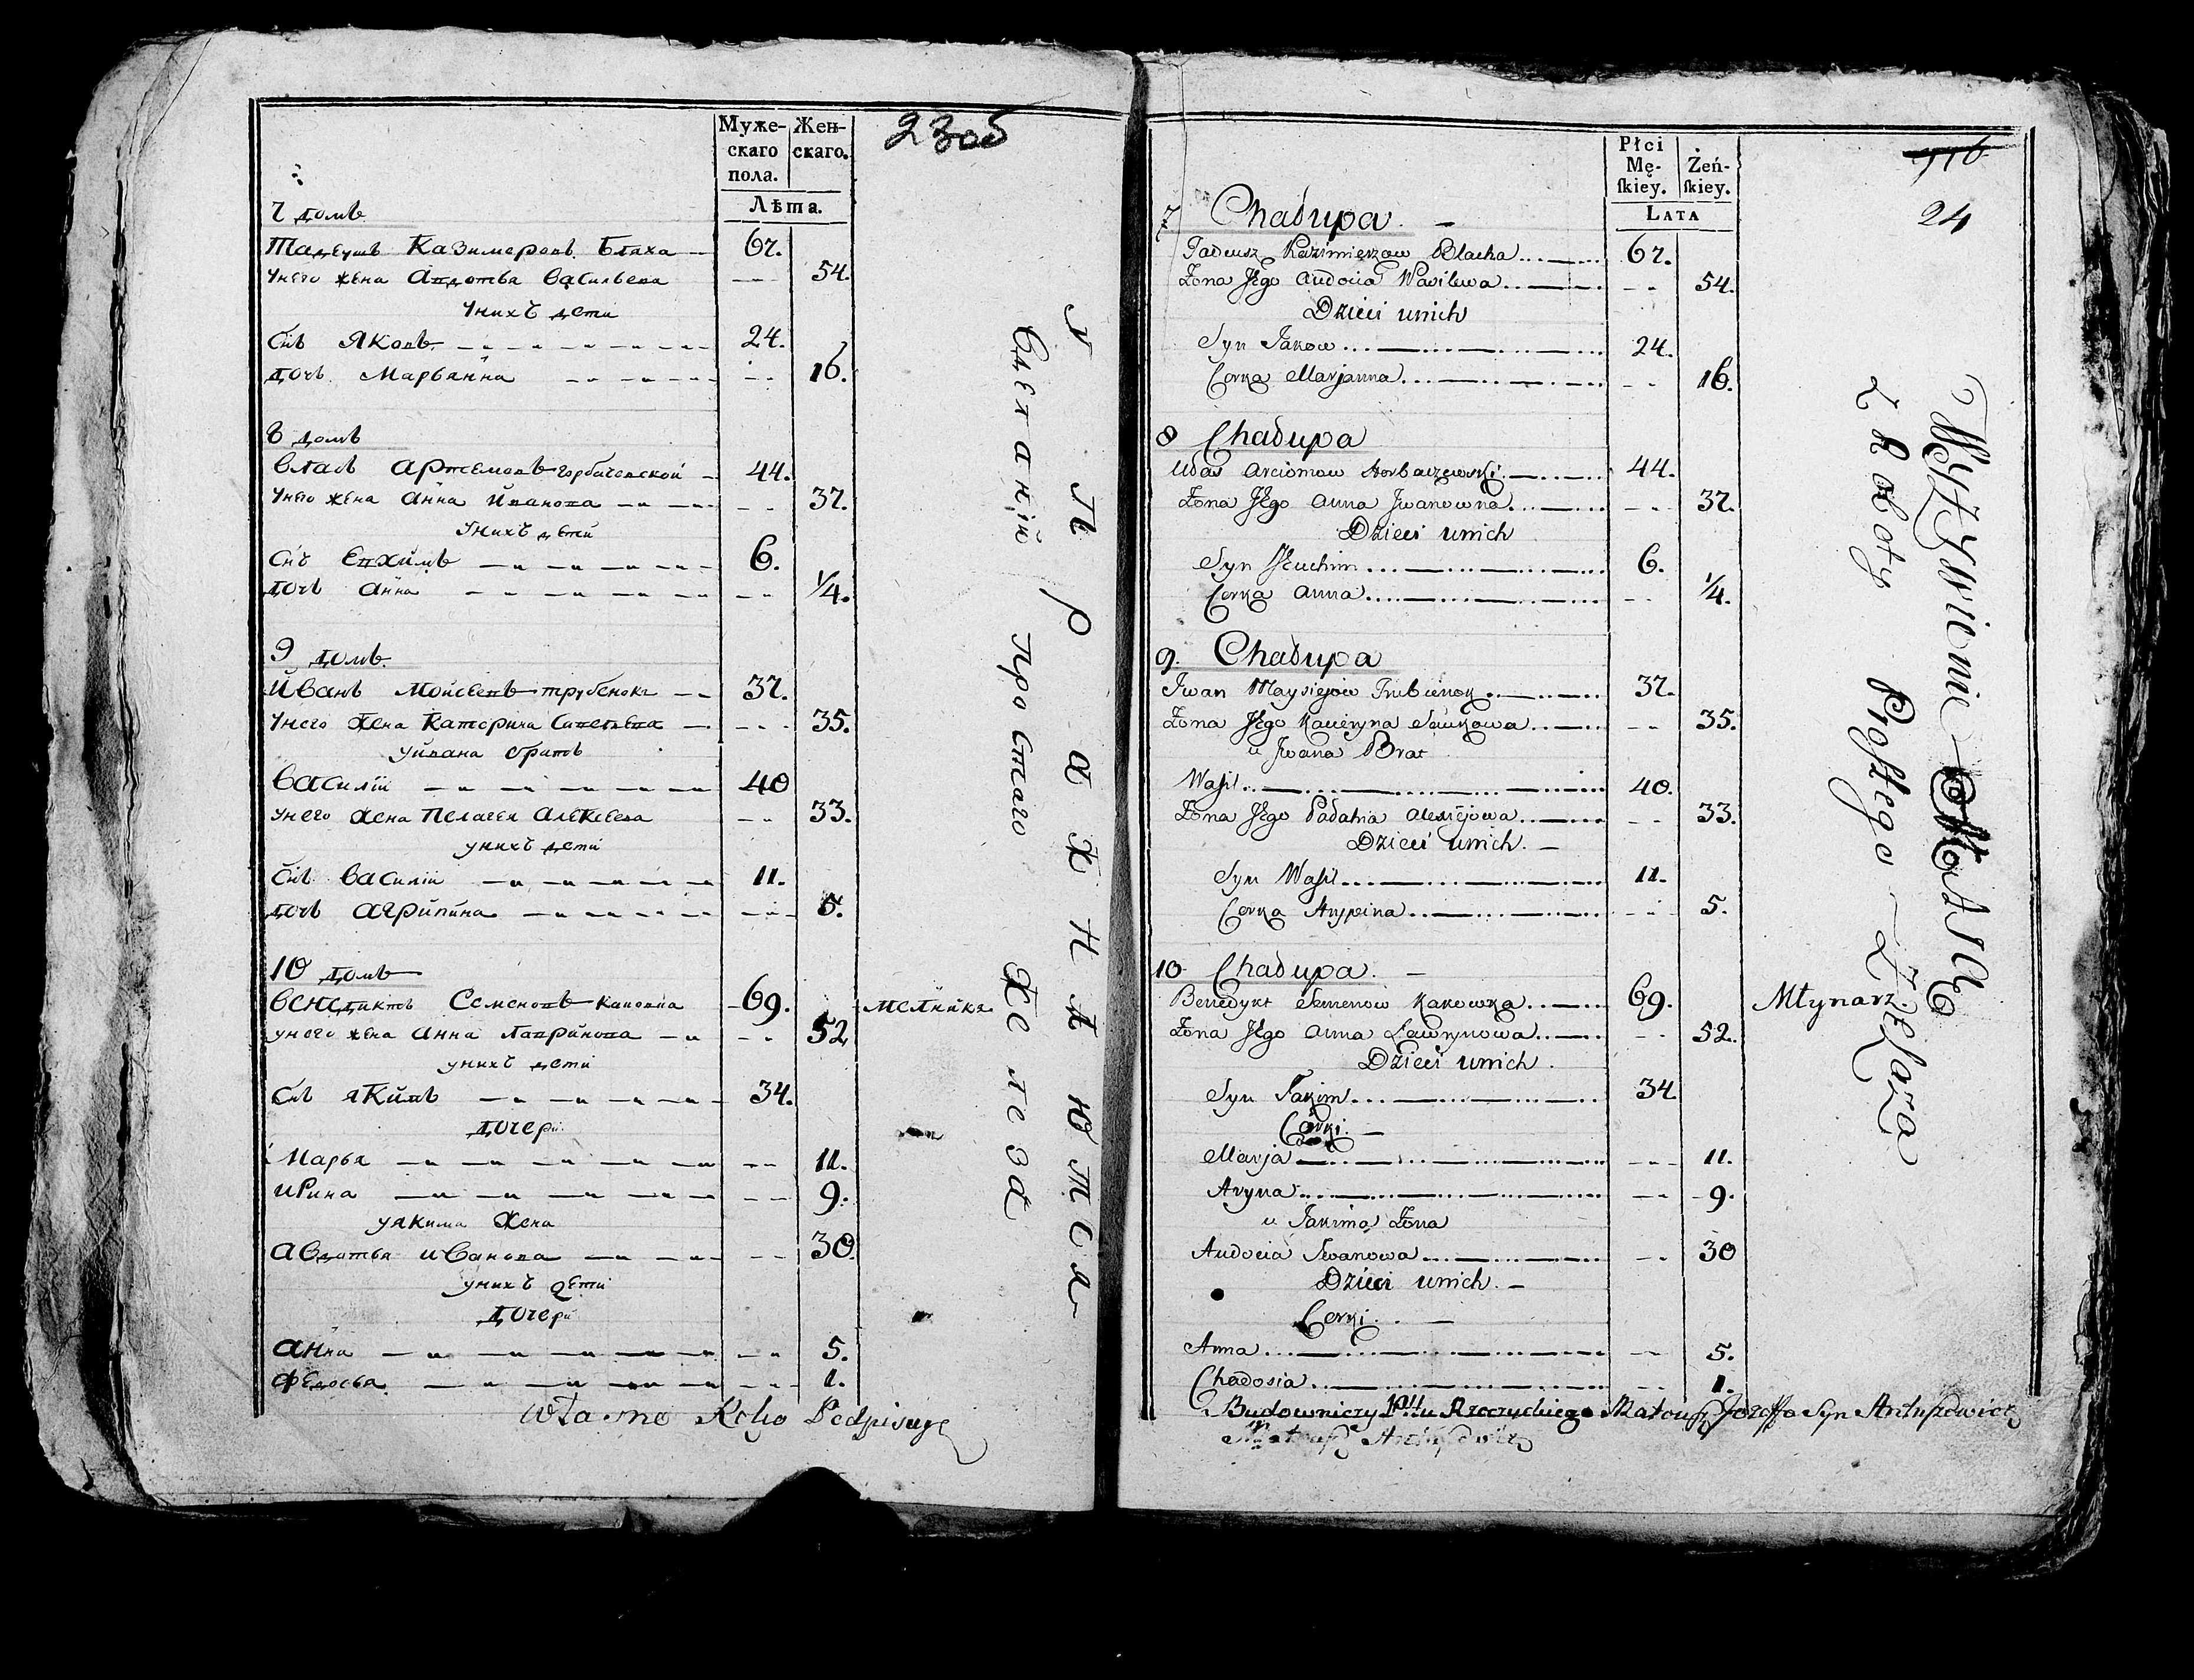 Муже-
скаго
пола.
Жен-
скаго.
Лѣта.
23об
7 домъ
Тадеушъ Казимеровъ Бляха 67.
Унего жена Авдотья Васильева 54.
Унихъ дети
Снъ Яковъ 24.
Дочь Марьянна 16.
8 домъ
Власъ Артемовъ Горбачевской 44.
Унего жена Анна Иванова 37.
Унихъ дети
Снъ Евхимъ 6.
Дочь Анна 1/4.
9 домъ
Иванъ Мойсеевъ Трубенокъ 37.
Унего жена Катерина Савельева 35.
уйвана братъ
Василій 40
Унего жена Пелагея Алексеева 33.
унихъ дети
Снъ Василій 11.
Дочь Агрипина 5.
10 домъ
Венедиктъ Семеновъ Каковка 69. мелникъ
унего жена Анна Лавринова 52
унихъ дети
Снъ Якимъ 34.
Дочери
Марья 11.
Ирина 9.
уякима жена
Авдотья Иванова 30
унихъ дети
Дочери
Анна 5.
Федосья 1.
Упражняютса
Сделаній Простаго Железа
Własno Ręką Podpisuję
Płci
Mę-
ſkiey.
Żeń-
ſkiey.
LATA
116
24
7 Chadupa
Tadeusz Kazimierzow Blacha 67.
Żona Jego Audocia Wasilewa 54.
Dzieci unich
Syn Jakow 24.
Corka Marjanna 16.
8 Chadupa
Ułas Arciomow Horbaczewski 44.
Żona Jego Anna Jwanowna 37.
Dzieci unich
Syn Jeuchim 6.
Corka Anna 1/4.
9. Chadupa
Jwan Maysiejow Trubienok 37.
Żona Jego Kacieryna Sawkowa 35.
u Jwana Brat
Wasil 40.
Żona Jego Padahia Alexiejowa 33.
Dzieci unich
Syn Wasil 11.
Corka Arypina 5.
10 Chadupa
Benedykt Semenow Kakowka 69. Młynarz
Żona Jego Anna Ławrynowa 52.
Dzieci unich
Syn Jakim 34.
Corki
Marja 11.
Aryna 9.
u Jakima Żona
Audocia Jwanowa 30
Dzieci unich
Corki
Anna 5.
Chadosia 1.
Budowniczy Pttu Rzeczyckiego Mateusz Jozeffa Syn Antuszewicz
Mateusz Antuszewicz
Z Roboty Prostego Żelaza